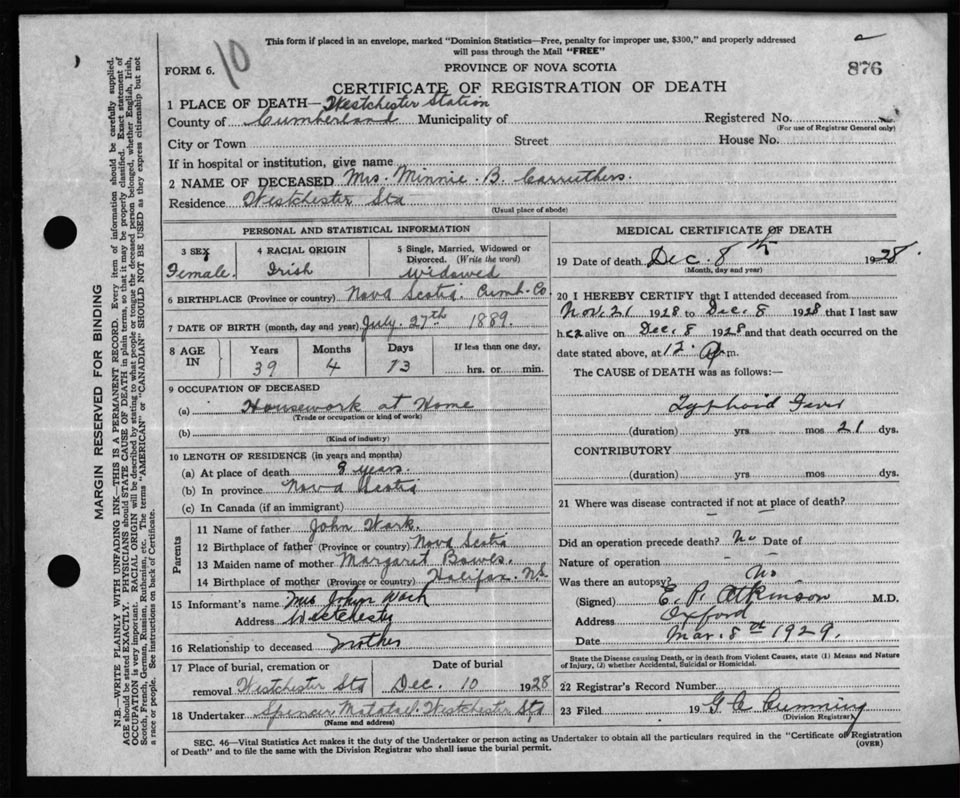 This form if placed in an envelope, marked "Dominion Statistics—Free, penalty for improper use, $300," and properly addressed
will pass through the Mail "FREE"
FORM 6. 10
PROVINCE OF NOVA SCOTIA
876
CERTIFICATE OF REGISTRATION OF DEATH
1 PLACE OF DEATH— Westchester Station
County of Cumberland Municipality of Registered No.
(For use of Registrar General only)
City or Town Street House No.
If in hospital or institution, give name
2 NAME OF DECEASED Mrs. Minnie. B. Carruthers.
Residence Westchester Sta
(Usual place of abode)
PERSONAL AND STATISTICAL INFORMATION
3 SEX 4 RACIAL ORIGIN 5 Single, Married, Widowed or
Divorced. (Write the word)
Female. Irish Widowed
6 BIRTHPLACE (Province or country) Nova Scotia. Cumb. Co.
7 DATE OF BIRTH (month, day and year) July. 27th 1889.
8 AGE IN Years Months Days If less than one day,
39 4 13 hrs. or min.
9 OCCUPATION OF DECEASED
(a) Housework at Home
(Trade or occupation or kind of work)
(b)
(Kind of industry)
10 LENGTH OF RESIDENCE (in years and months)
(a) At place of death 8 years.
(b) In province Nova Scotia
(c) In Canada (if an immigrant)
Parents
11 Name of father John Wark.
12 Birthplace of father (Province or country) Nova Scotia
13 Maiden name of mother Margaret Bowes.
14 Birthplace of mother (Province or country) Halifax. N.S.
15 Informant's name Mrs John Wark
Address Westchester
16 Relationship to deceased Mother
17 Place of burial, cremation or Date of burial
removal Westchester Sta Dec. 10 1928
18 Undertaker Spencer Westchester Sta
(Name and address)
MEDICAL CERTIFICATE OF DEATH
19 Date of death Dec. 8th 1928.
(Month, day and year)
20 I HEREBY CERTIFY that I attended deceased from
Nov. 21 1928 to Dec. 8 1928 that I last saw
h er alive on Dec. 8 1928 and that death occurred on the
date stated above, at 12 m.
The CAUSE of DEATH was as follows:—
Typhoid Fever
(duration) yrs. mos 21 dys.
CONTRIBUTORY
(duration) yrs. mos dys.
21 Where was disease contracted if not at place of death?
Did an operation precede death? No Date of
Nature of operation
Was there an autopsy? No
(Signed) E. P. Atkinson M.D.
Address Oxford
Date Mar. 8th 1929.
State the Disease causing Death, or in death from Violent Causes, state (1) Means and Nature
of Injury, (2) whether Accidental, Suicidal or Homicidal.
22 Registrar's Record Number
23 Filed 19 G C Cumming
(Division Registrar)
SEC. 46—Vital Statistics Act makes it the duty of the Undertaker or person acting as Undertaker to obtain all the particulars required in the "Certificate of Registration
of Death" and to file the same with the Division Registrar who shall issue the burial permit.
(OVER)
MARGIN RESERVED FOR BINDING
N.B.—WRITE PLAINLY WITH UNFADING INK—THIS IS A PERMANENT RECORD. Every item of information should be carefully supplied.
AGE should be stated EXACTLY. PHYSICIANS should STATE CAUSE OF DEATH in plain terms, so that it may be properly classified. Exact statement of
OCCUPATION is very important. RACIAL ORIGIN will be described by stating to what people or tongue the deceased person belonged, whether English, Irish,
Scotch, French, German, Russian, Ruthenian, etc. The terms "AMERICAN" or "CANADIAN" SHOULD NOT BE USED as they express citizenship but not
a race or people. See instructions on back of Certificate.